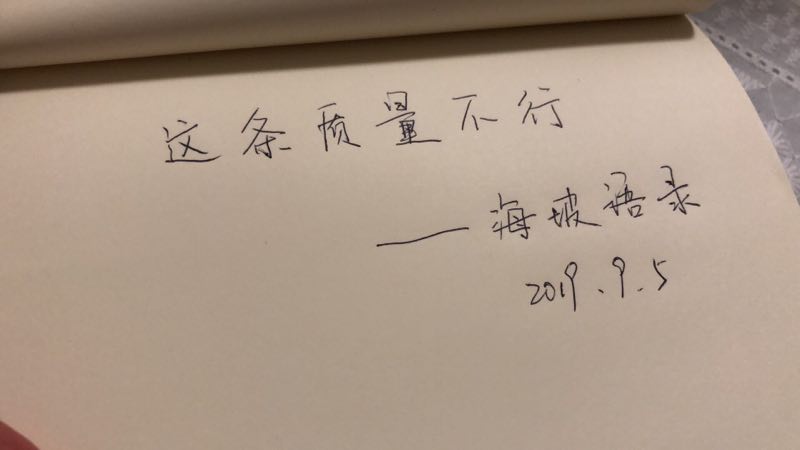 这条质量不行
——海坡语录
2019.9.5